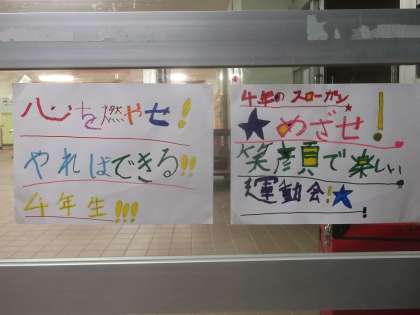 心を燃やせ!
やればできる!!
4年生!!!
4年のスローガン
★めざせ!
笑顔で楽しい
運動会!★